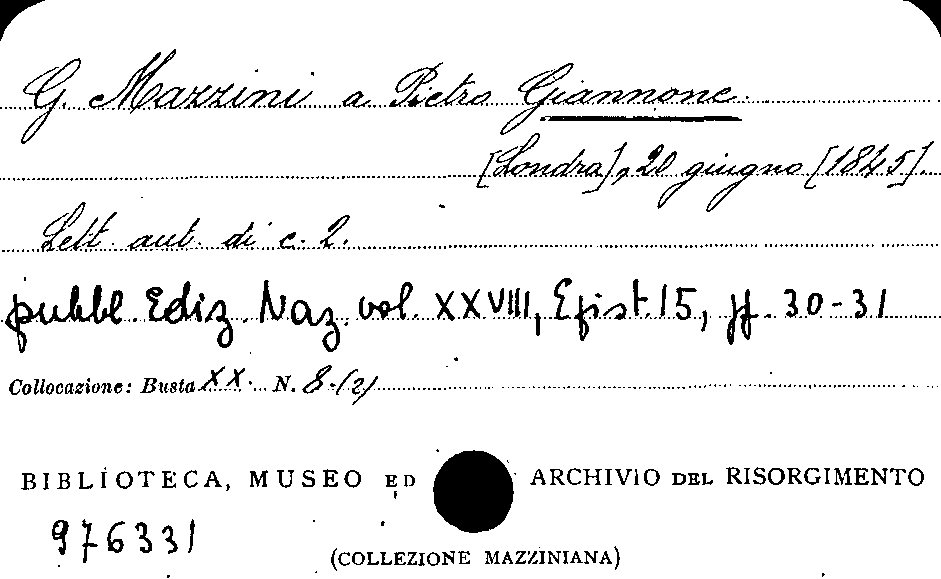 G. Mazzini a Pietro Giannone.
[Londra], 20 giugno [1845].
Lett. aut. di c. 2.
pubbl. Ediz. Naz. vol. XXVIII, Epist. 15, pp. 30-31
Collocazione: Busta XX. N. 8-(2)
BIBLIOTECA, MUSEO ED ARCHIVIO DEL RISORGIMENTO
976331
(COLLEZIONE MAZZINIANA)